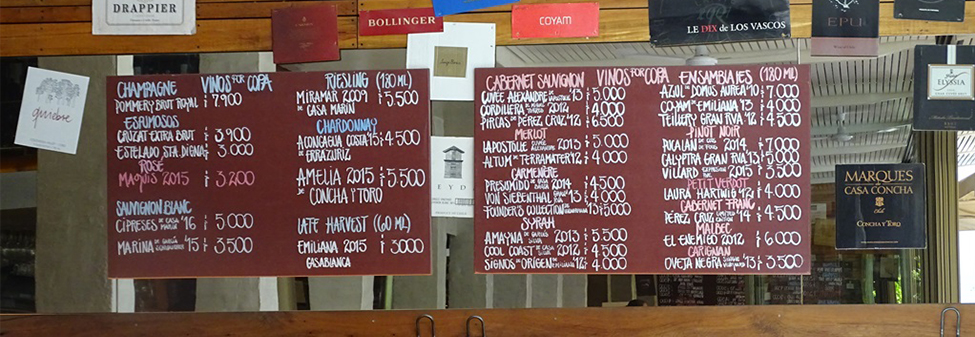 DRAPPIER
BOLLINGER
COYAM
LE DIX de LOS VASCOS
EPU
ELYSIA
quirse
EYO
MARQUES
de
CASA CONCHA
CONCHA Y TORO
CHAMPAGNE VINOS POR COPA
POMMERY BRUT ROYAL $7.900
ESPUMOSOS
CRUZAT EXTRA BRUT $3.900
ESTELADO STA. DIGNA $3.000
ROSÉ
MAQUIS 2015 $3.200
SAUVIGNON BLANC
CIPRESES DE CASA MARIN '16 $5.000
MARINA DE GARCÉS SILVA '15 $3.500
RIESLING (180 ML)
MIRAMAR 2009 $5.500
DE CASA MARIN
CHARDONNAY
ACONCAGUA COSTA '15 $4.500
DE ERRAZURIZ
AMELIA 2015 $5.500
DE CONCHA Y TORO
LATE HARVEST (60 ML)
EMILIANA 2015 $3.000
CASABLANCA
CABERNET SAUVIGNON VINOS POR COPA
CUVÉE ALEXANDRE '13 $5.000
CORDILLERA 2012 $4.000
PIRCAS DE PEREZ CRUZ '12 $6.500
MERLOT
LAPOSTOLLE 2013 $5.000
ALTUM DE TERRAMATER '12 $4.000
CARMENÈRE
PRESUMIDO 2014 $4.500
VON SIEBENTHAL '13 $4.000
FOUNDER'S COLLECTION '13 $5.000
SYRAH
AMAYNA DE GARCÉS SILVA 2012 $5.500
COOL COAST DE CASA SILVA 2012 $4.500
SIGNOS DE ORIGEN DE EMILIANA '12 $4.000
ENSAMBLAJES (180 ML)
AZUL DOMUS AUREA '10 $7.000
COYAM DE EMILIANA '13 $4.000
TEILLERY GRAN RVA '12 $4.500
PINOT NOIR
PUCALAN 2014 $7.000
CALYPTRA GRAN RVA '13 $5.500
VILLARD EXPRESION RVE 2015 $3.500
PETIT VERDOT
LAURA HARTWIG '12 $4.000
CABERNET FRANC
PEREZ CRUZ LIMITED EDITION '14 $4.500
MALBEC
EL ENEMIGO 2012 $6.000
CARIGNAN
OVEJA NEGRA '13 $3.500